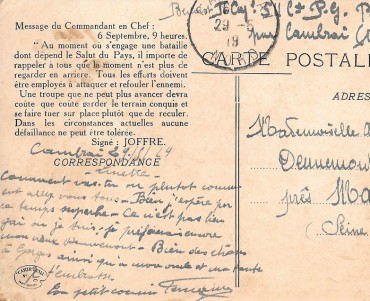 Message du Commandant en Chef :
6 Septembre, 9 heures.
" Au moment où s'engage une bataille
dont dépend le Salut du Pays, il importe de
rappeler à tous que le moment n'est plus de
regarder en arrière. Tous les efforts doivent
être employés à attaquer et refouler l'ennemi.
Une troupe que ne peut plus avancer devra
coûte que coûte garder le terrain conquis et
se faire tuer sur place plutôt que de reculer.
Dans les circonstances actuelles aucune
défaillance ne peut être tolérée.
Signé : JOFFRE.
CORRESPONDANCE
Cambrai
Comment vas-tu ou plutôt comment
allez vous tous - Bien j'espère par
ce temps superbe - Ce n'est pas bien
gai où je suis - je préférerais encore
mon vieux Dennemont - Bien des choses
à ainsi qu'à mon oncle et ma tante
t'embrasse
Ton petit cousin
29
19
Cambrai
CARTE POSTALE
ADRES
Mademoiselle
Dennemont
près Ma
(Seine